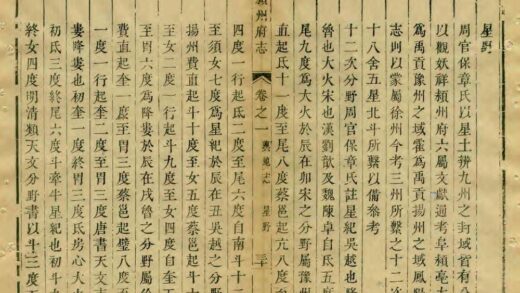 星野
周官保章氏以星土辨九州之封域皆有
以觀妖祥頴州府六屬文獻通考阜頴亳
爲禹貢豫州之域霍爲禹貢揚州之域鳳
志則以蒙屬徐州今考三州所繫之十二次
十八舍五星北斗所繫以備參考
十二次分野周官保章氏註星紀吳越也
魯也大火宋也漢劉歆及魏陳卓自氐五度
尾九度爲大火於辰在卯宋之分野屬豫
直起氐十一度至尾八度蔡邕起亢八度
頴州府志 卷之一 輿地志 星野 三十
四度一行起氐二度至尾六度自南斗十二
至須女七度爲星紀於辰在丑吳越之分野
揚州費直起斗十度至女五度蔡邕起斗
至女二度一行起斗九度至女四度自奎
至胃六度爲降婁於辰在戌魯之分野屬徐
費直起奎一度至胃三度蔡邕起璧八度
一度一行起奎二度至胃三度唐書天文志
婁降婁也初奎一度終胃三度氐房心大
初氐三度終尾六度斗牽牛星紀也初斗
終女四度明清類天文分野書以斗三度